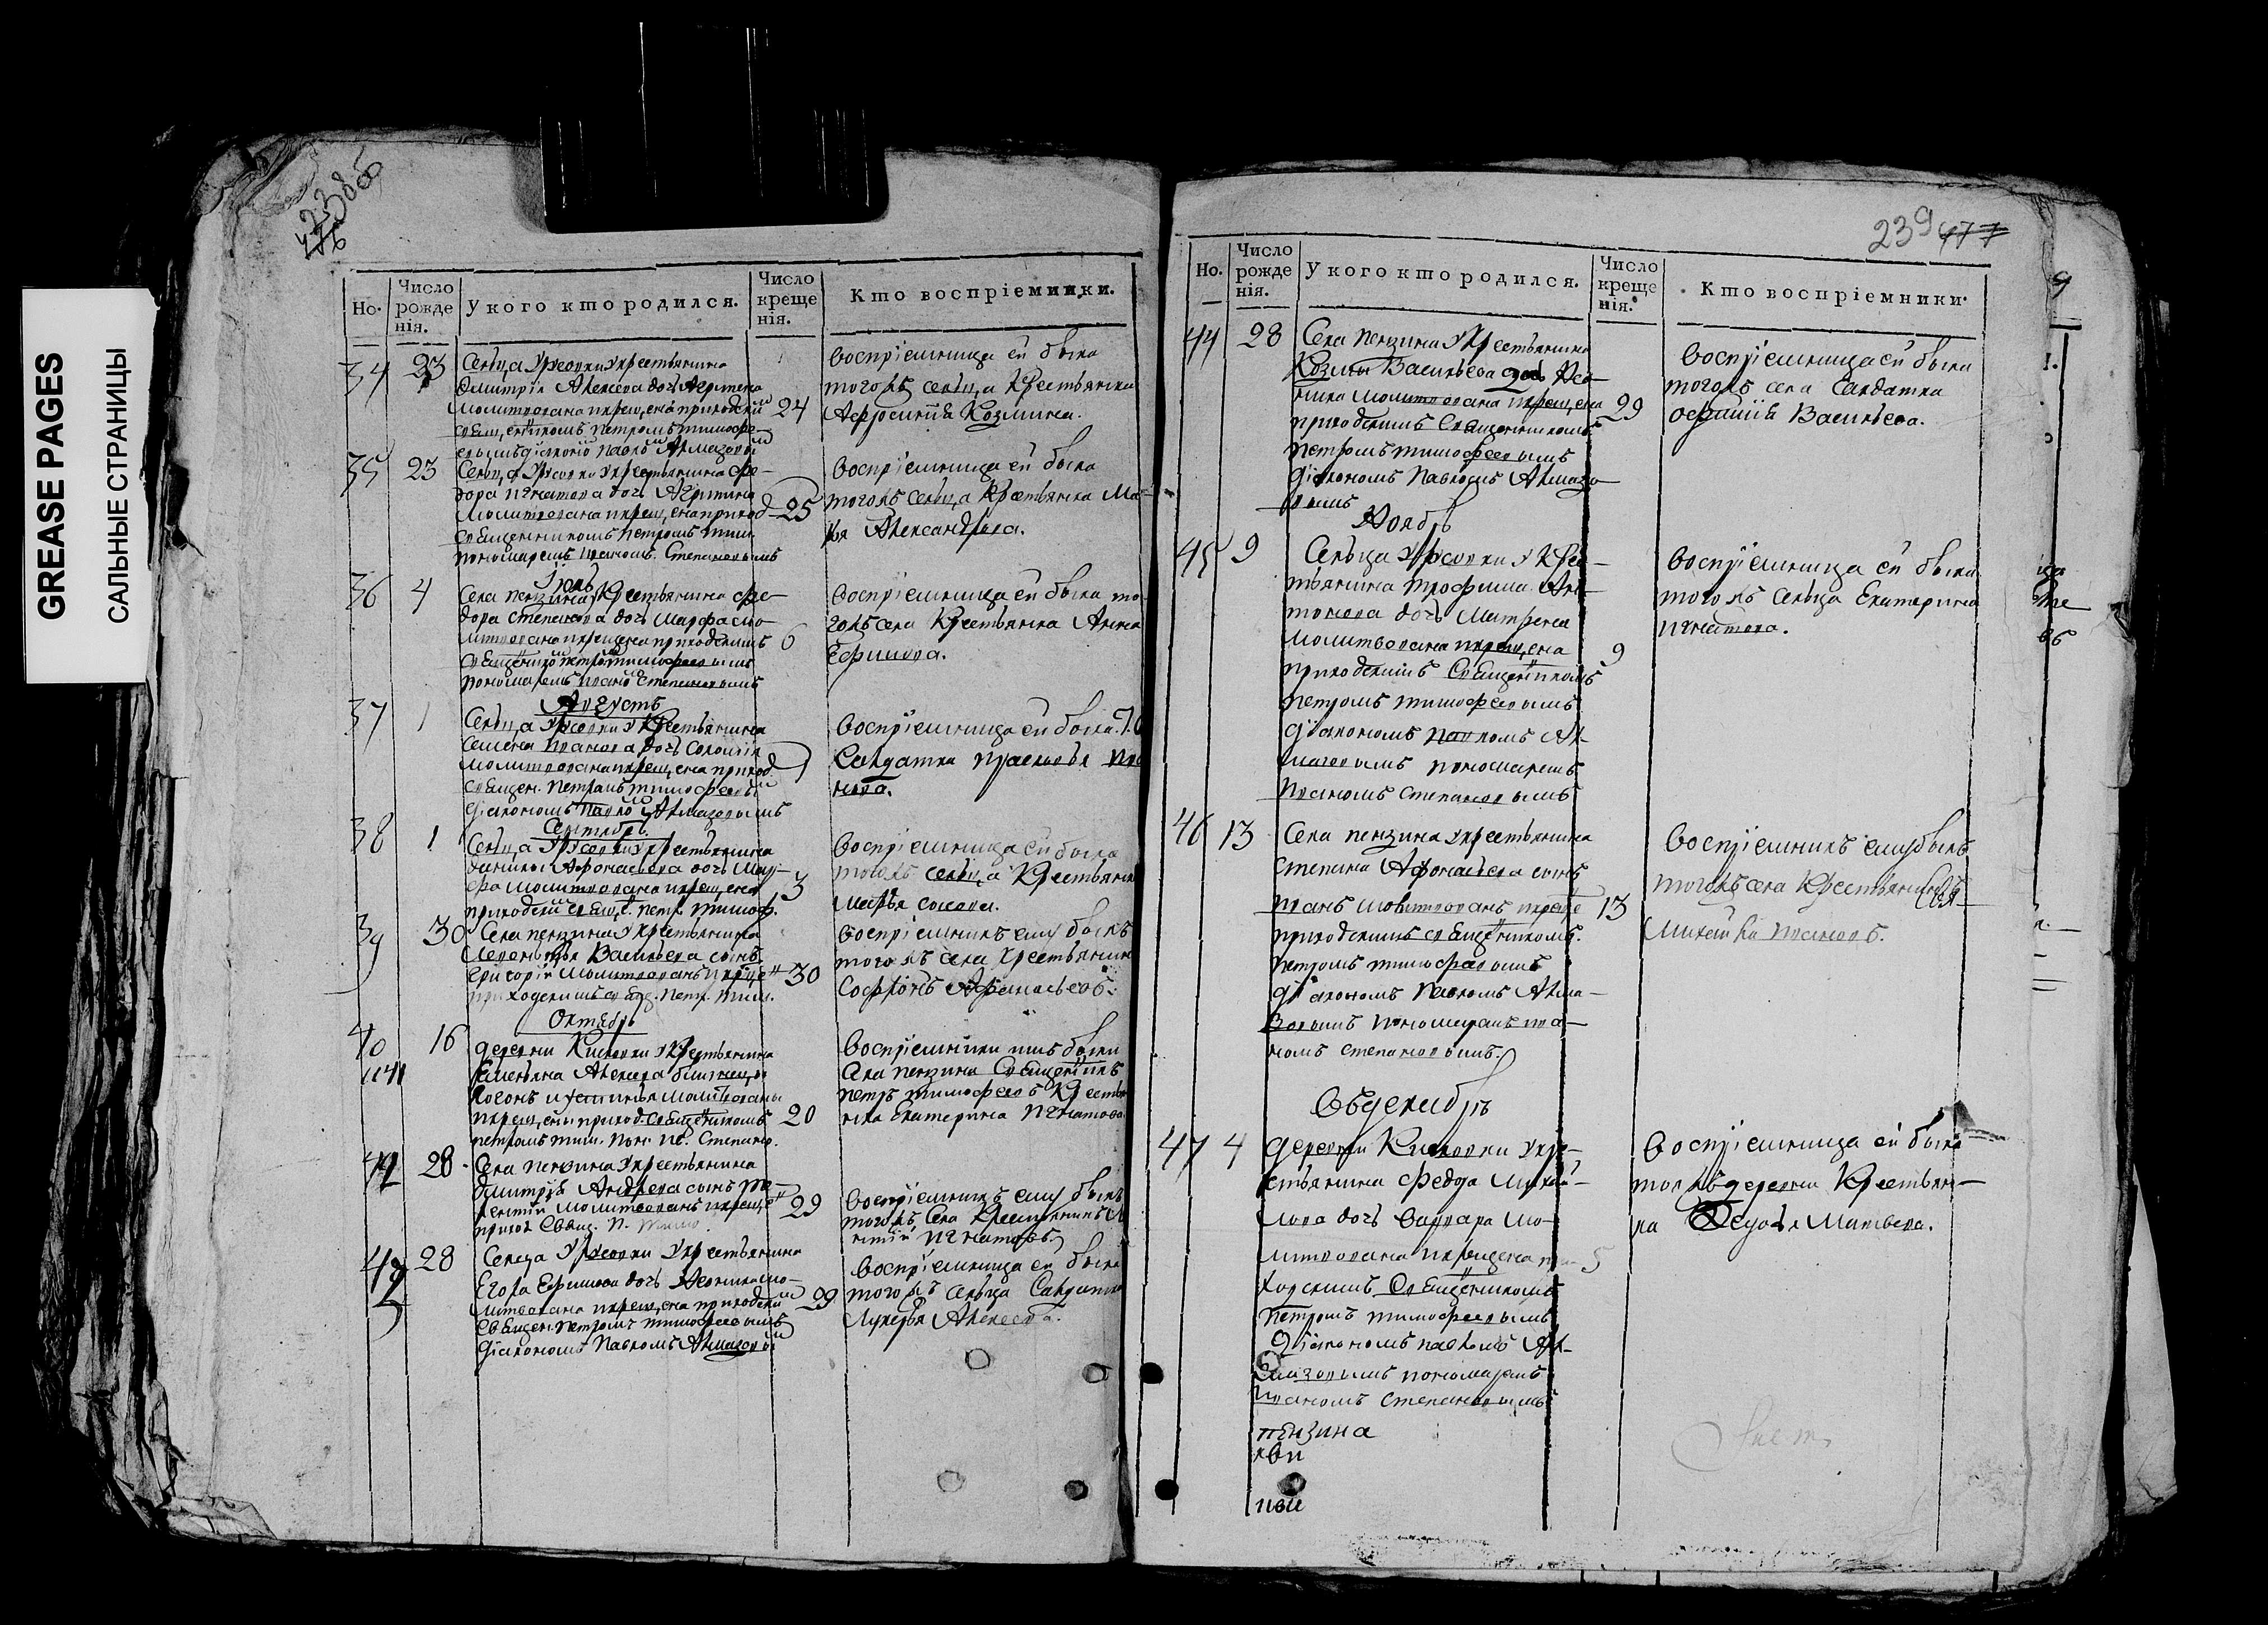 GREASE PAGES
САЛЬНЫЕ СТРАНИЦЫ
238об
476
Но. Число рожде нія. У кого кто родился. Число креще нія. Кто воспріемники.
34 23 Сельца Ужовки укрестьянина
Дмитрія Алексева дочь Агрипена
молитвована икрещена приходскимъ 24
священникомъ петромъ тимофе-
евымъ діакономъ павломъ Алмазовымъ
воспріемница ей была
тогожъ сельца Крестьянка
Афросинія Козмина.
35 23 Сельца Ужовки укрестьянина фе-
дора игнатова дочь Агрипина
молитвована икрещена приход 25
священникомъ петромъ тим.
пономаремъ иваномъ Степановымъ
воспріемница ей была
тогожъ сельца Крестьянка Ма-
рья Александрова.
Іюль
36 4 Села пензина укрестьянина фе-
дора степанова дочь марфа мо-
литвована икрещена приходскимъ 6
священникомъ петромъ тимофеевымъ
пономаремъ иваномъ Степановымъ
воспріемница ей была то-
гожъ села Крестьянка Анна
Ефимова.
Августъ
37 1 Сельца Ужовки укрестьянина
семена иванова дочь Соломія
молитвована икрещена приход. 1
священ. петромъ тимофеевымъ
діакономъ павломъ Алмазовымъ
воспріемница ей была
Салдатка прасковья
нова.
Сентябрь.
38 1 Сельца Ужовки укрестьянина
данилы Афонасьева дочь мар-
фа молитвована икрещена 3
приходскимъ свящ. петр. тимоф.
воспріемница ей была
тогожъ сельца Крестьянка
марья
39 30 Села пензина укрестьянина
Леонтья Васильева сынъ
григорій молитвованъ икрещен 30
приходскимъ свящ. петр. тим.
воспріемникъ ему былъ
тогожъ села крестьянин
Софронъ Афанасьевъ.
Октябрь
40 16 деревни Кисловки укрестьянина
и 41 Емельяна Алексева близнецы
и устинья молитвованы
икрещены приход. священникомъ 20
петромъ тим. пон. ив. Степано.
воспріемники имъ были
села пензина священникъ
петръ тимофеевъ Крестья
нка Екатерина игнатова
42 28 Села пензина укрестьянина
дмитрія Андреева сынъ те-
рентій молитвованъ икрещен 29
приход Священ. п. тимо
воспріемникъ ему былъ
тогожъ Села Крестьянинъ
игнатовъ.
43 28 Сельца Ужовки укрестьянина
Егора Ефимова дочь мо-
литвована икрещена приходским 29
священ. петромъ тимофеевымъ
діакономъ Павломъ Алмазовым
воспріемница ей была
тогожъ сельца Салдатка
Лукерья Алексеева.
239 477
Но. Число рожде нія. У кого кто родился. Число креще нія. Кто воспріемники.
44 28 Села пензина укрестьянина
Козмы Васильева дочь
молитвована икрещена 29
приходскимъ Священникомъ
петромъ тимофеевымъ
діакономъ Павломъ Алмазо-
вымъ
воспріемница ей была
тогожъ села Салдатка
Васильева.
Ноябрь
45 9 Сельца Ужовки у Крес-
тьянина трофима Ан-
тонова дочь Матрена
молитвована икрещена 9
приходскимъ Священникомъ
петромъ тимофеевымъ
діакономъ павломъ Ал-
мазовымъ пономаремъ
иваномъ степановымъ
воспріемница ей была
тогожъ Сельца Екатерина
игнатова.
46 13 Села пензина укрестьянина
степана Афонасьева сынъ
иванъ молитвованъ икреще 13
приходскимъ священникомъ.
петромъ тимофеевымъ
діакономъ павломъ Алма-
зовымъ пономарамъ ива-
номъ степановымъ.
воспріемникъ ему былъ
тогожъ села крестьянинъ
михайла ивановъ.
Въ декабръ
47 4 деревни Кисловки укре-
стьянина федора Михай-
лова дочь варвара мо-
литвована икрещена при 5
ходскимъ священникомъ
петромъ тимофеевымъ
діакономъ павломъ Ал-
мазовымъ пономарамъ
иваномъ степановымъ
воспріемница ей была
тояжъ деревни Крестьян-
ка Федосья Матвева.
пензина